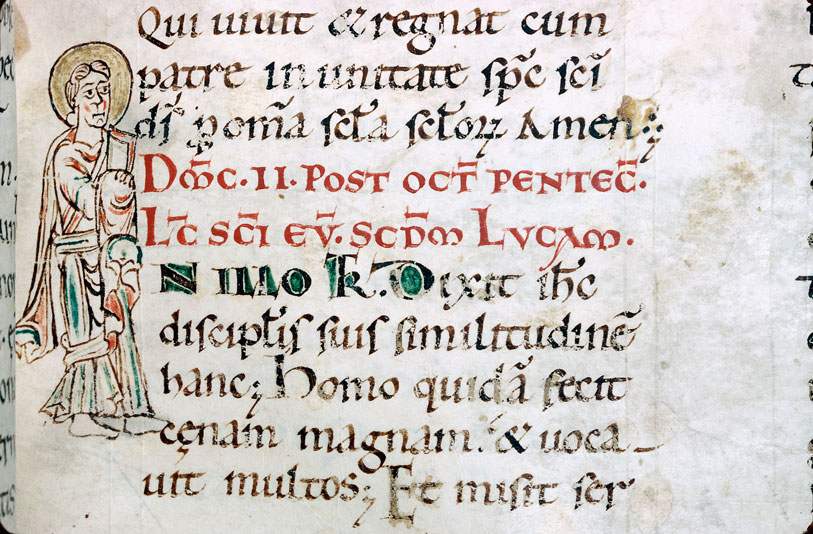 Qui uiuit & regnat cum
patre in unitate sp̄c sc̄i
dſ̄ ꝑ om̄a scl̄a scl̄oꝝ Amen
Dom̄c. II. POST OCT̄ PENTEC̄.
Lc̄ SC̄I EV̄. SCD̄M LVCAM.
N ILLO T̄R. Dixit ih̄c
discipl̄is suis similitudinē
hanc; Homo quidā fecit
cęnam magnam. & uoca
uit multos; Et misit ser